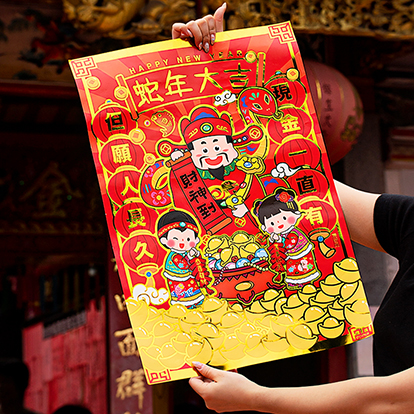 HAPPY NEW
蛇年大吉
但願人長久
現金一直有
財神到